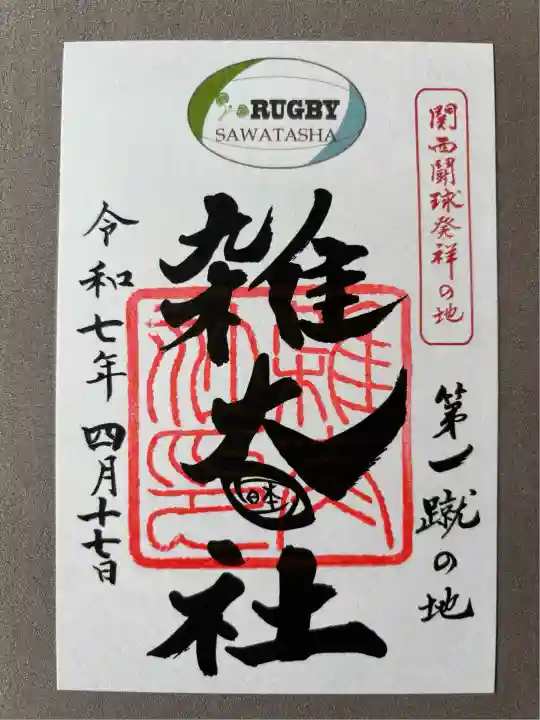 RUGBY
SAWATASHA
関西闘球発祥の地
第一蹴の地
雑太社
日本
令和七年 四月十七日